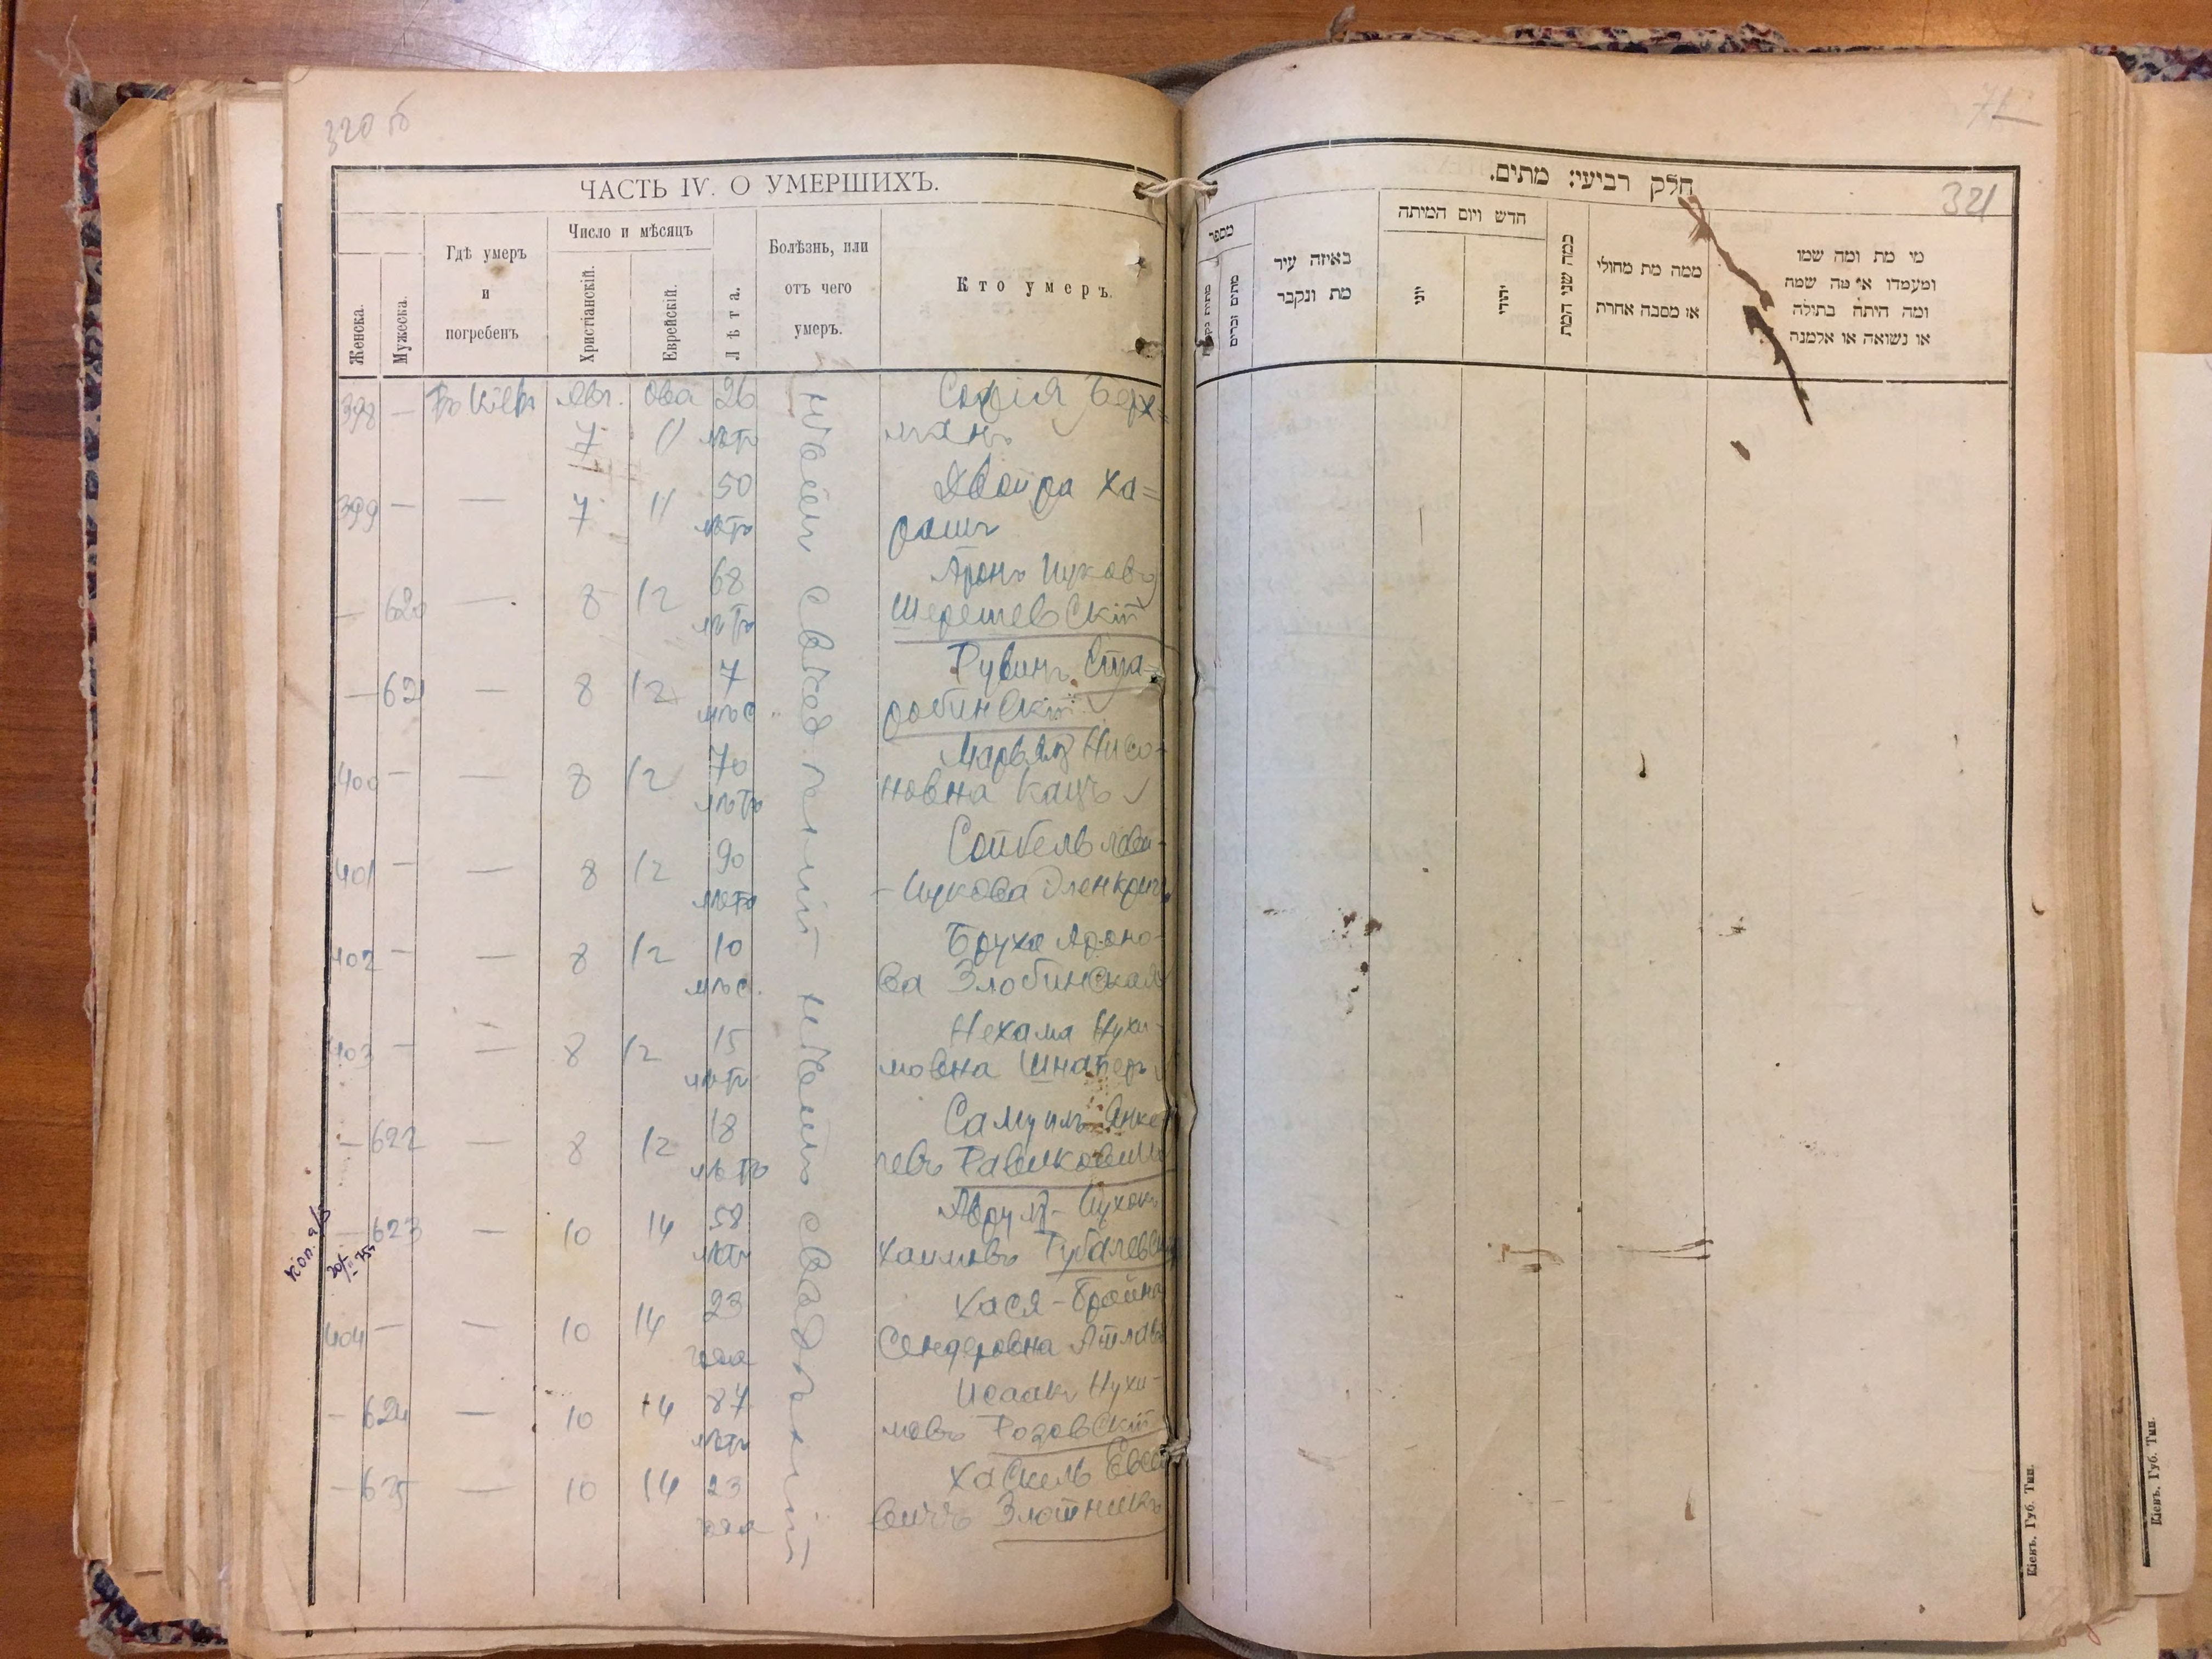 320 об
ЧАСТЬ IV. О УМЕРШИХЪ.
Женска.
Мужеска.
Гдѣ умеръ
и
погребенъ
Число и мѣсяцъ
Христіанскій.
Еврейскій.
Лѣта.
Болѣзнь, или
отъ чего
умеръ.
Кто умеръ.
398 — Въ Кіевѣ Авг. Ова 26 Софія Берх=
7 11 лѣтъ манъ
399 — — 7 11 50 Двойра Ха=
лѣтъ рашъ
— 620 — 8 12 68 Аронъ Ицковъ
лѣтъ Шерешевскій
— 621 — 8 12 7 Рувинъ Ста=
мѣс. робинскій
400 — — 8 12 70 Марьям Нисо-
лѣтъ новна Кацъ
401 — — 8 12 90 Сойбель
лѣтъ Ицкова
402 — — 8 12 10 Бруха Ароно-
мѣс. ва Злобинская
403 — — 8 12 15 Нехама Нухи-
лѣтъ мовна Шнаперъ
— 622 — 8 12 18 Самуилъ Янке
лѣтъ левъ Равиковичъ
— 623 — 10 14 58 Аврум-Ицхокъ
лѣтъ Хаимовъ
404 — — 10 14 23 Хася-Бройна
года Сендеровна
— 624 — 10 14 87 Исаакъ Нухи-
лѣтъ мовъ Розовскій
— 625 — 10 14 23 Хаскель Евсее
года вичъ Злотникъ
72
321
חלק רביעי: מתים.
מספר
מתים זכרים
באיזה עיר
מת ונקבר
חדש ויום המיתה
יוני
יהודי
כמה שני המת
ממה מת מחולי
או מסבה אחרת
מי מת ומה שמו
ומעמדו או מה שמה
ומה היתה בתולה
או נשואה או אלמנה
Кіевъ. Губ. Тип.
Кіевъ. Губ. Тип.